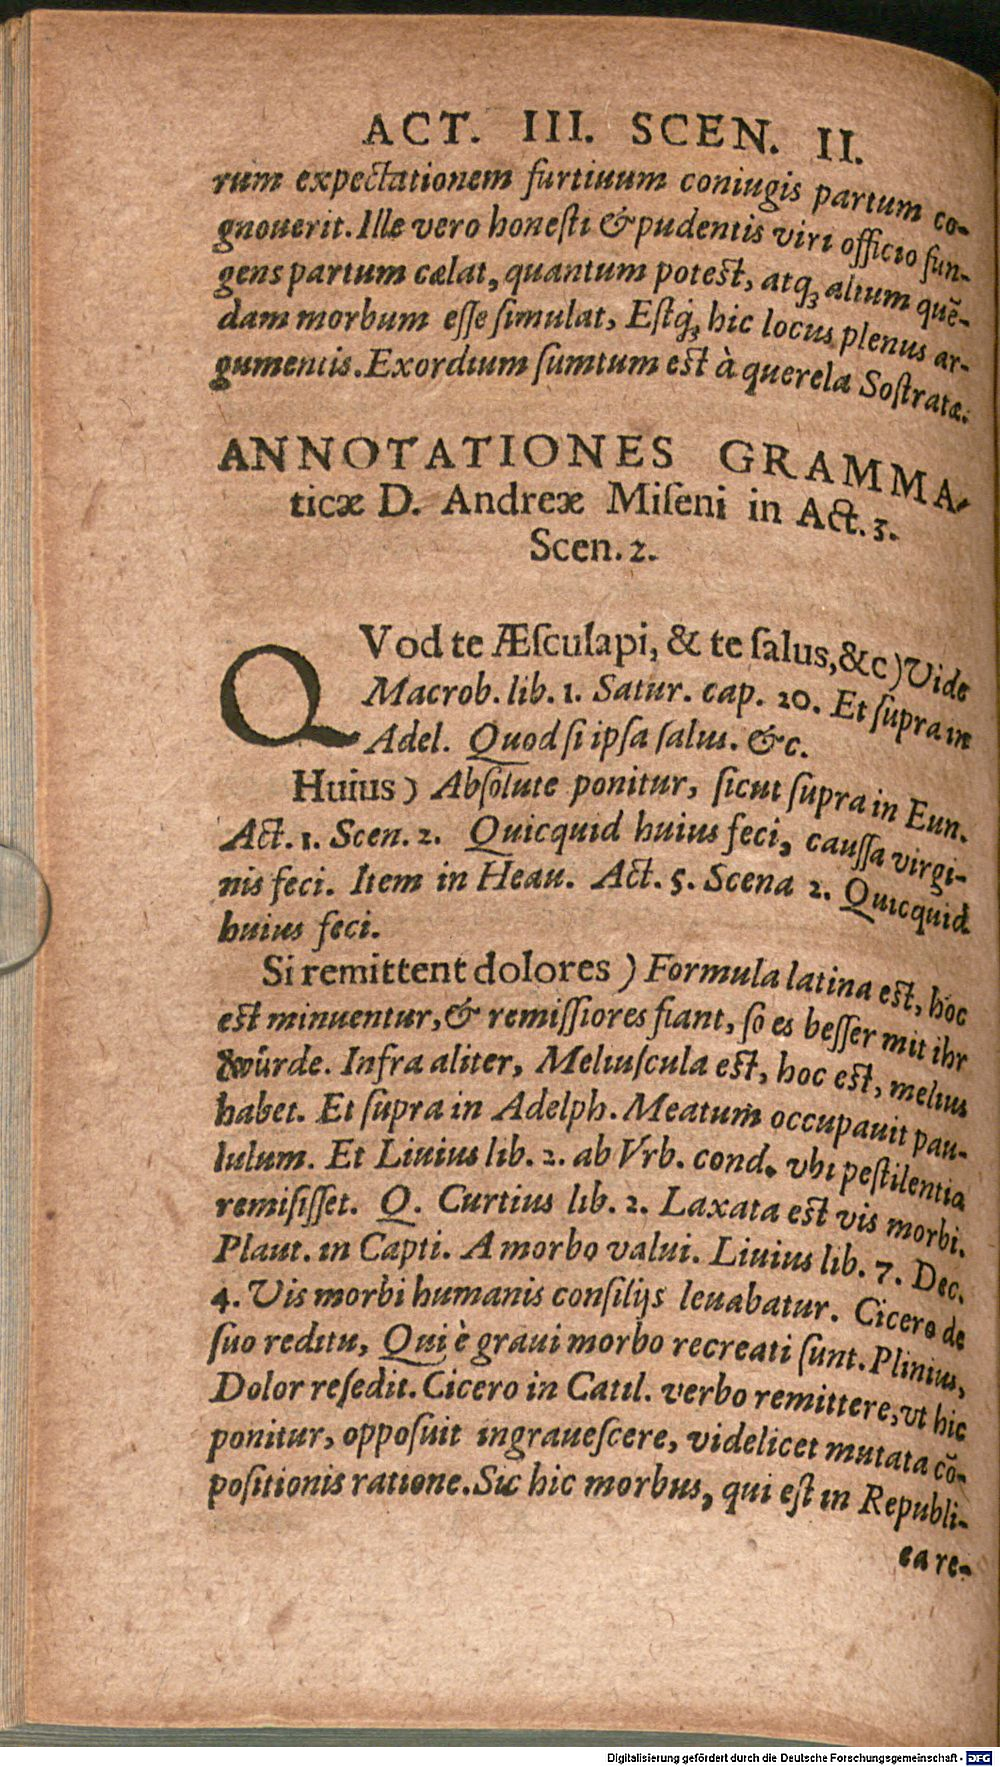 ACT. III. SCEN. II.
rum expectationem furtiuum coniugis partum co-
gnouerit. Ille vero honeſti & pudentis viri officio fun-
gens partum cælat, quantum poteſt, atq́ꝫ alium quē-
dam morbum eſſe ſimulat, Eſtq́ꝫ hic locus plenus ar-
gumentis. Exordium ſumtum eſt à querela Soſtratæ.
ANNOTATIONES GRAMMA-
ticæ D. Andreæ Miſeni in Act. 3.
Scen. 2.
QVod te Æſculapi, & te ſalus, &c) Vide
Macrob. lib. 1. Satur. cap. 20. Et ſupra in
Adel. Quod ſi ipſa ſalus. &c.
Huius) Abſolute ponitur, ſicut ſupra in Eun.
Act. 1. Scen. 2. Quicquid huius feci, cauſſa virgi-
nis feci. Item in Heau. Act. 5. Scena 2. Quicquid
huius feci.
Si remittent dolores) Formula latina eſt, hoc
eſt minuentur, & remiſſiores fiant, ſo es beſſer mit ihr
würde. Infra aliter, Meliuſcula eſt, hoc eſt, melius
habet. Et ſupra in Adelph. Meatum occupauit pau-
lulum. Et Liuius lib. 2. ab Vrb. cond. vbi peſtilentia
remiſiſſet. Q. Curtius lib. 2. Laxata eſt vis morbi.
Plaut. in Capti. A morbo valui. Liuius lib. 7. Dec.
4. Vis morbi humanis conſilijs leuabatur. Cicero de
ſuo reditu, Qui è graui morbo recreati ſunt. Plinius,
Dolor reſedit. Cicero in Catil. verbo remittere, vt hic
ponitur, oppoſuit ingraueſcere, videlicet mutata cō-
poſitionis ratione. Sic hic morbus, qui eſt in Republi-
ca re-
Digitalisierung gefördert durch die Deutsche Forschungsgemeinschaft - DFG